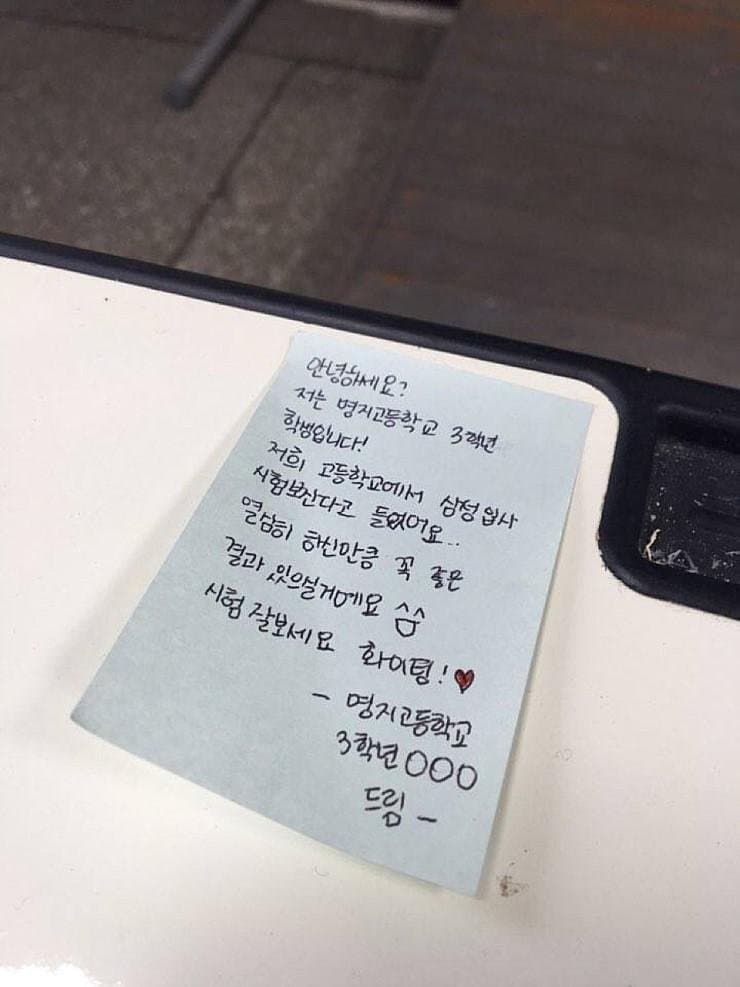 안녕하세요?
저는 명지고등학교 3학년
학생입니다!
저희 고등학교에서 삼성입사
시험보신다고 들었어요..
열심히 하신만큼 꼭 좋은
결과 있으실거에요 ^^
시험 잘보세요 화이팅!♥
- 명지고등학교
3학년 OOO
드림 -